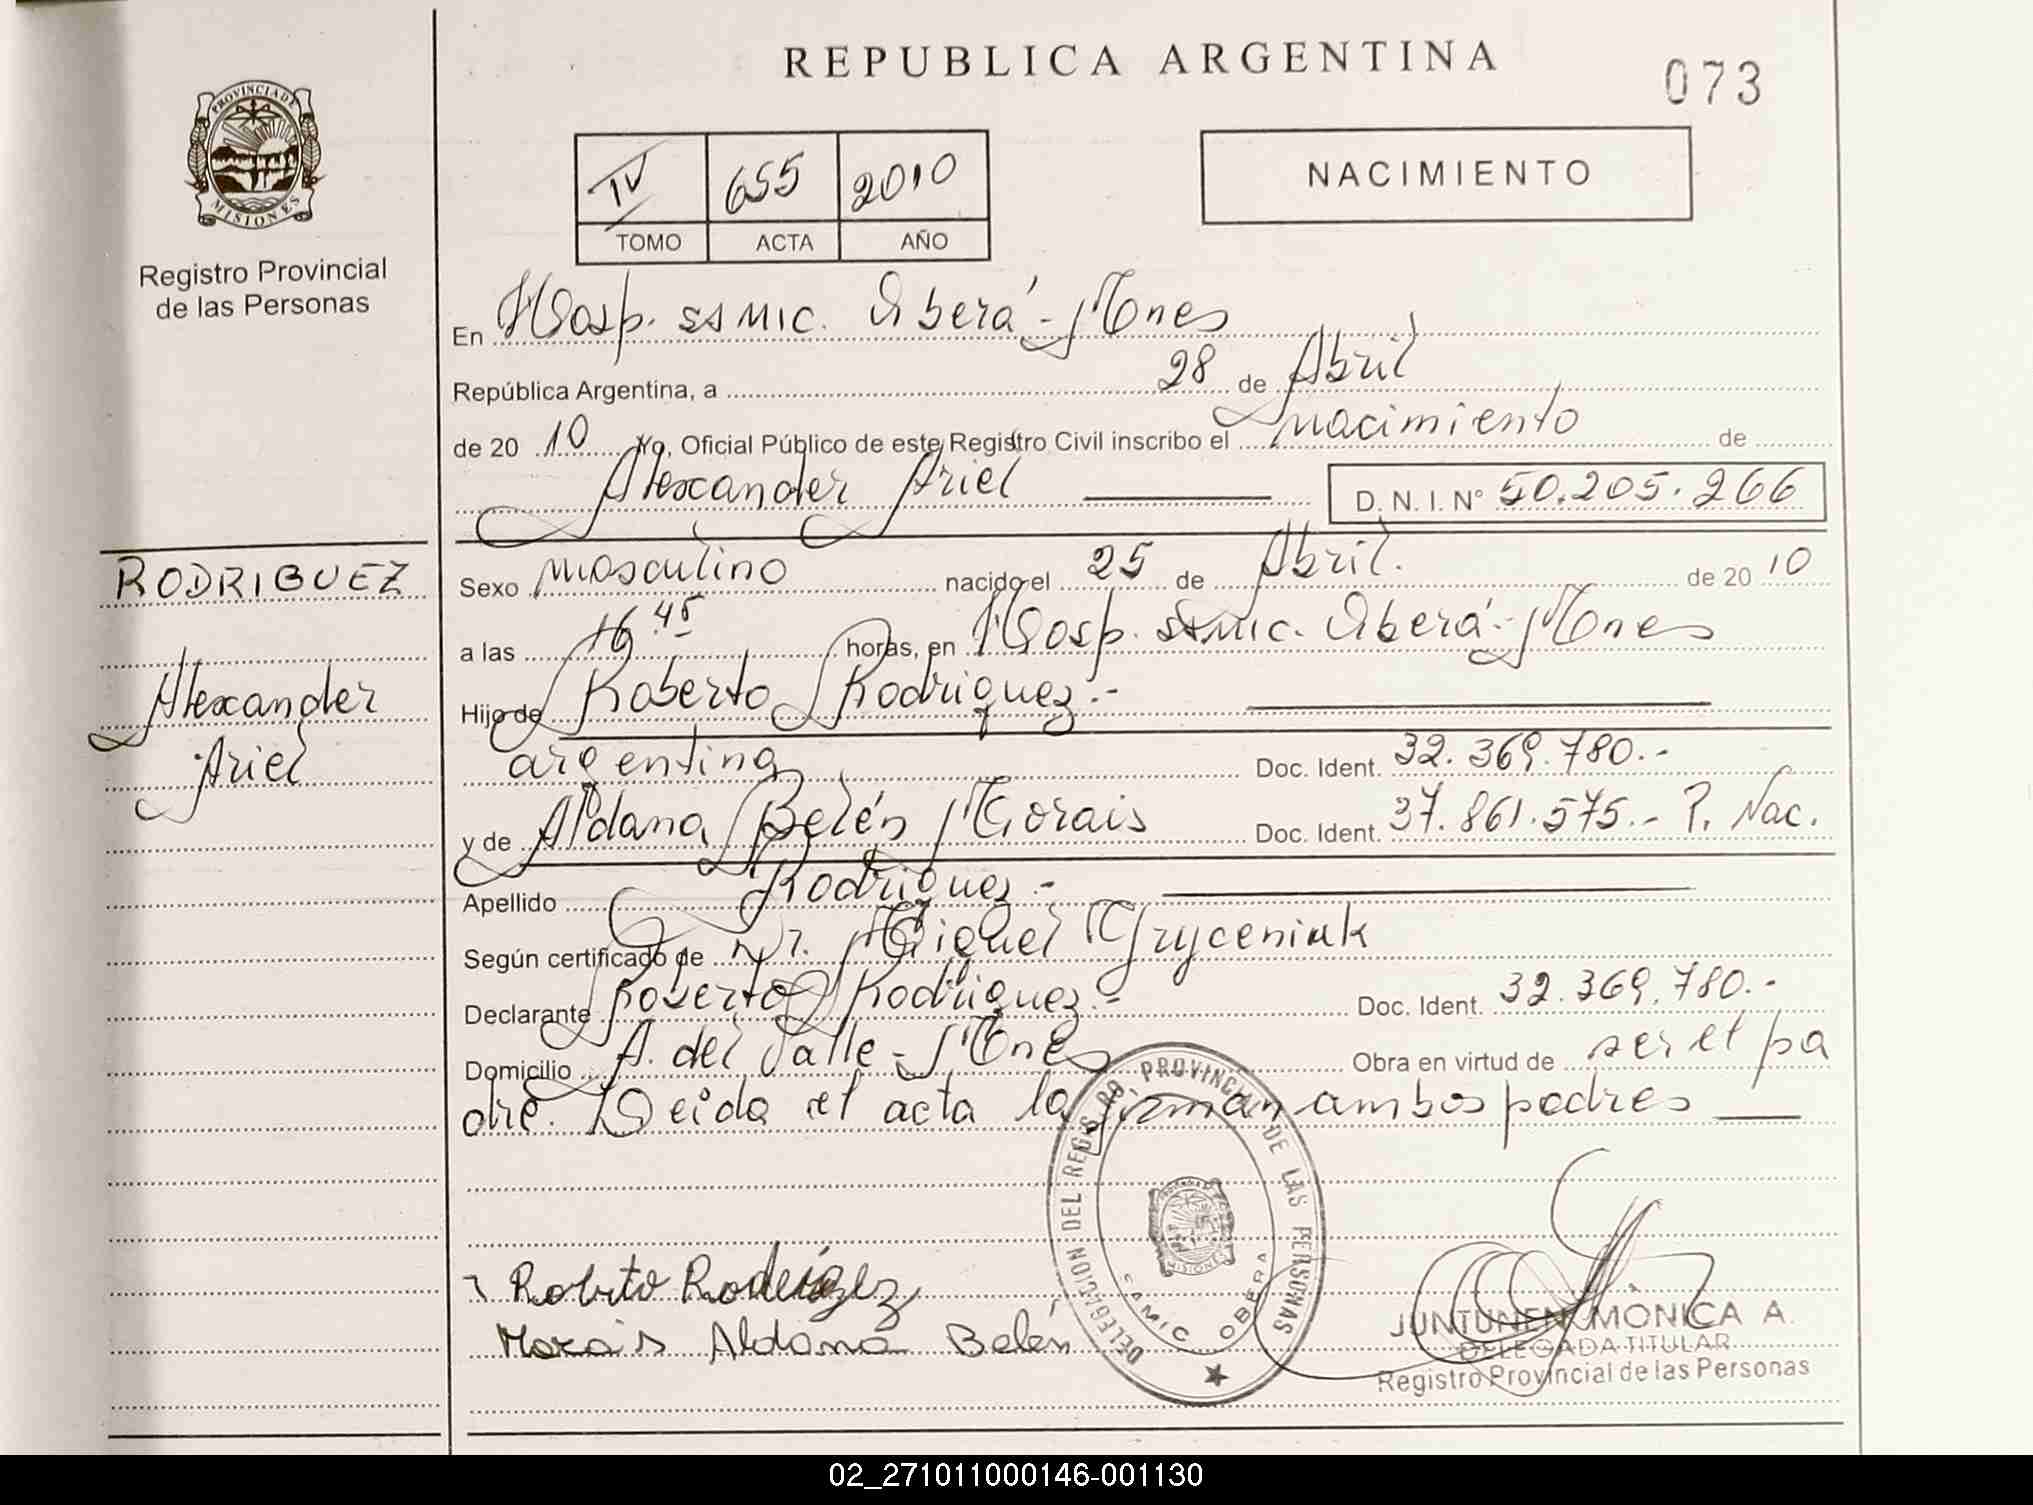 REPUBLICA ARGENTINA
073
PROVINCIA DE
MISIONES
Registro Provincial
de las Personas
IV 655 2010
TOMO ACTA AÑO
NACIMIENTO
En Hosp. SAMIC. Oberá - Mnes
República Argentina, a 28 de Abril
de 20 10 Yo, Oficial Público de este Registro Civil inscribo el nacimiento de
Alexander Ariel D. N. I. N° 50.205.266
RODRIGUEZ
Alexander
Ariel
Sexo masculino nacido el 25 de Abril. de 20 10
a las 16.45 horas, en Hosp. SAMIC. Oberá - Mnes
Hijo de Roberto Rodriguez.-
argentina Doc. Ident. 32.369.780.-
y de Aldana Belén Morais Doc. Ident. 37.861.575.- P. Nac.
Apellido Rodriguez.-
Según certificado de Dr. Miguel Gryceniuk
Declarante Roberto Rodriguez.- Doc. Ident. 32.369.780.-
Domicilio A. del Valle - Mnes Obra en virtud de ser el pa
dre. Leida el acta la firman ambos padres
Roberto Rodriguez
Morais Aldana Belén
DELEGACION DEL REGISTRO PROVINCIAL DE LAS PERSONAS
SAMIC OBERA
MISIONES
JUNTUNEN MÓNICA A.
DELEGADA TITULAR
Registro Provincial de las Personas
02_271011000146-001130